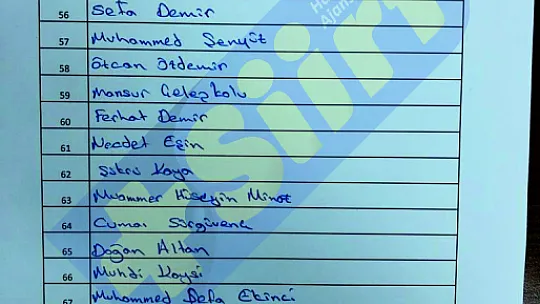 56 Sefa Demir
57 Muhammed Şenyüt
58 Özcan Özdemir
59 Mansur Geleşkolu
60 Ferhat Demir
61 Necdet Eşin
62 Şükrü Kaya
63 Muammer Hüseyin Minat
64 Cumai
65 Doğan Altan
66 Muhdi Kaysi
67 Muhammed Sefa Ekinci
Siirt
Ajans